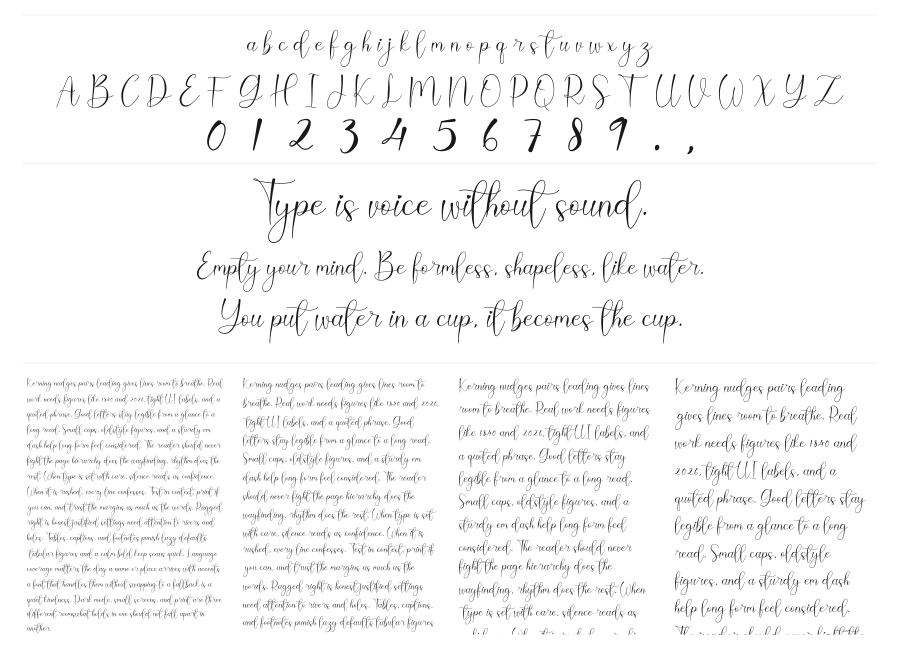 a b c d e f g h i j k l m n o p q r s t u v w x y z
A B C D E F G H I J K L M N O P Q R S T U V W X Y Z
0 1 2 3 4 5 6 7 8 9 . ,
Type is voice without sound.
Empty your mind. Be formless, shapeless, like water.
You put water in a cup, it becomes the cup.
Kerning nudges pairs leading gives lines room to breathe. Real
work needs figures like 1840 and 2026, tight UI labels, and a
quoted phrase. Good letters stay legible from a glance to a
long read. Small caps, oldstyle figures, and a sturdy em
dash help long form feel considered. The reader should never
fight the page hierarchy does the wayfinding, rhythm does the
rest. When type is set with care, silence reads as confidence.
When it is rushed, every line confesses. Test in context, print if
you can, and trust the margins as much as the words. Ragged
right is honest justified settings need attention to rivers and
holes. Tables, captions, and footnotes punish lazy defaults
tabular figures and a calm bold keep scans quick. Language
coverage matters the day a name or place arrives with accents
a font that handles them without swapping to a fallback is a
quiet kindness. Dark mode, small screens, and print are three
different rooms what holds in one should not fall apart in
another.
Kerning nudges pairs leading gives lines room to
breathe. Real work needs figures like 1840 and 2026,
tight UI labels, and a quoted phrase. Good
letters stay legible from a glance to a long read.
Small caps, oldstyle figures, and a sturdy em
dash help long form feel considered. The reader
should never fight the page hierarchy does the
wayfinding, rhythm does the rest. When type is set
with care, silence reads as confidence. When it is
rushed, every line confesses. Test in context, print if
you can, and trust the margins as much as the
words. Ragged right is honest justified settings
need attention to rivers and holes. Tables, captions,
and footnotes punish lazy defaults tabular figures
Kerning nudges pairs leading gives lines
room to breathe. Real work needs figures
like 1840 and 2026, tight UI labels, and
a quoted phrase. Good letters stay
legible from a glance to a long read.
Small caps, oldstyle figures, and a
sturdy em dash help long form feel
considered. The reader should never
fight the page hierarchy does the
wayfinding, rhythm does the rest. When
type is set with care, silence reads as
Kerning nudges pairs leading
gives lines room to breathe. Real
work needs figures like 1840 and
2026, tight UI labels, and a
quoted phrase. Good letters stay
legible from a glance to a long
read. Small caps, oldstyle
figures, and a sturdy em dash
help long form feel considered.
The reader should never fight the